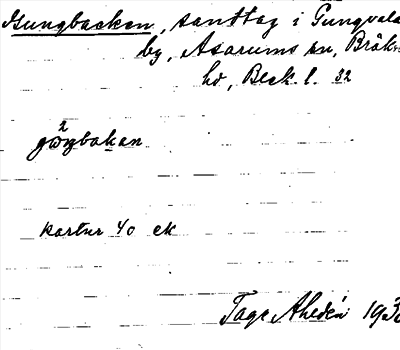 Gungbacken, sandtag i Gungvala
by, Asarums sn, Bräkn
hd, Bleck. l. 32
2
gωŋbakan
kartur 40 ek
Tage Ahldén 193